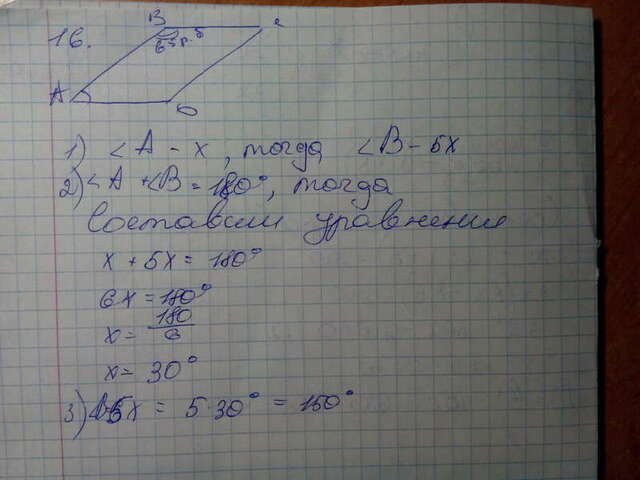 16.
B
с
в 5 р. б
A
D
1) <A - x, тогда <B - 5x
2) <A + <B = 180°, тогда
Составим уравнение
x + 5x = 180°
6x = 180°
x = 180/6
x = 30°
3) 5x = 5·30° = 150°